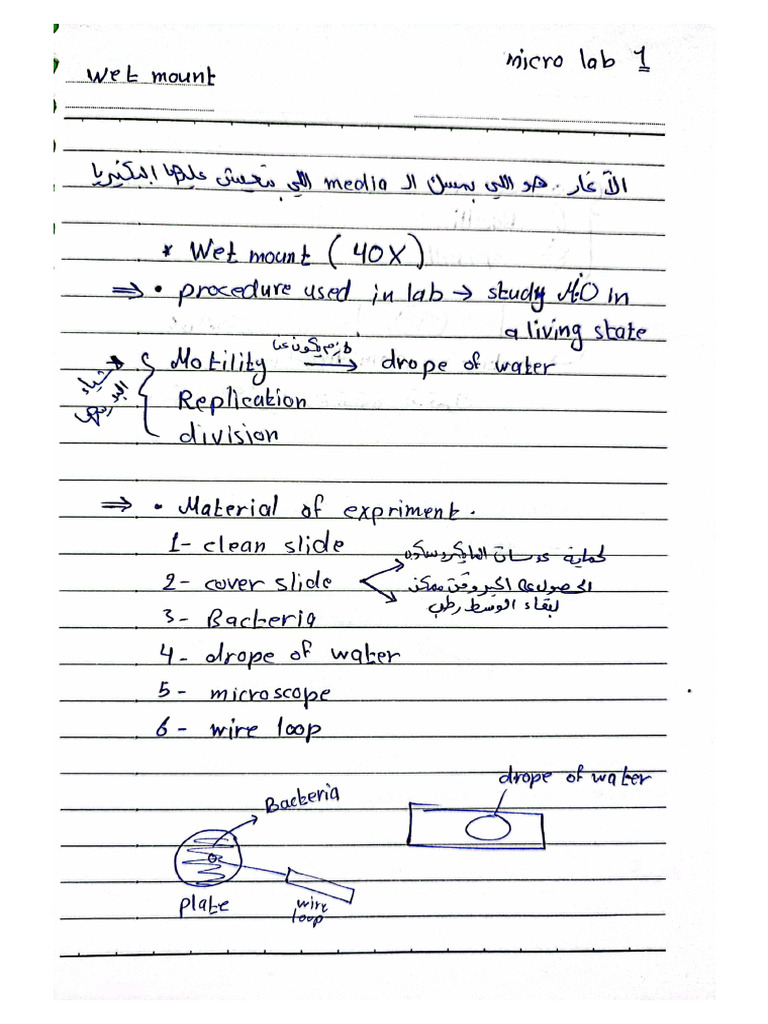 micro lab 1
wet mount
الآغار . هو اللي بمسك الـ media اللي بتعيش عليها البكتيريا
* Wet mount (40X)
⇒ • procedure used in lab → study M.O in
a living state
Motility لازم يكون عنا → drope of water
Replication
division
⇒ • Material of expriment .
1- clean slide
2- cover slide
لحماية عدسات المايكروسكوب
الحصول على اكبر وقت ممكن
لبقاء الوسط رطب
3- Bacteria
4- drope of water
5- microscope
6- wire loop
drope of water
Bacteria
plate
wire
loop